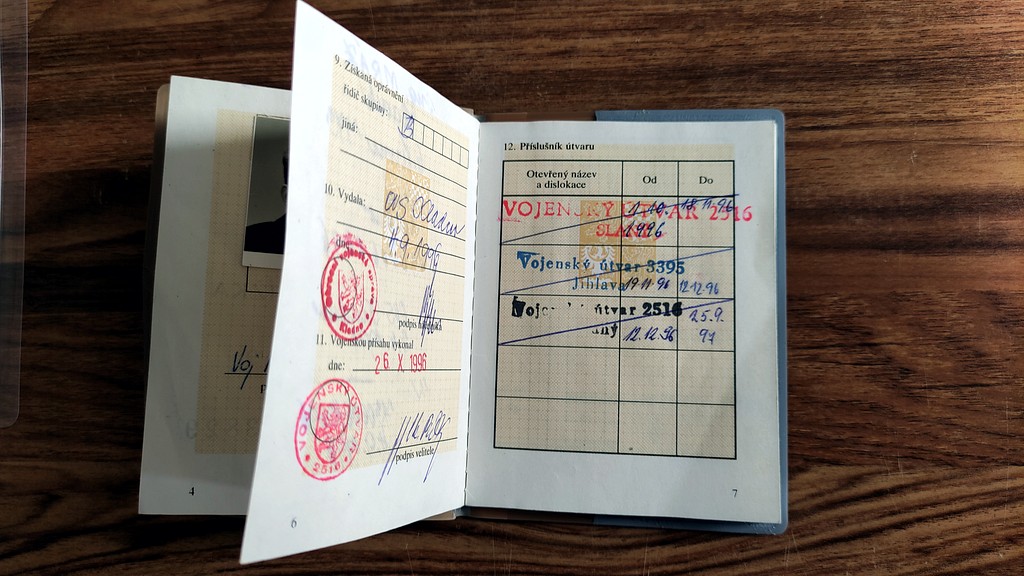 9. Získaná oprávnění
řidič skupiny: B
jiná:
10. Vydala: OVS Kladno
dne: 4.9.1996
Okresní vojenská správa
Kladno
podpis
11. Vojenskou přísahu vykonal
dne: 26 X 1996
VOJENSKÝ ÚTVAR
2516
podpis velitele
6
Voj
4
12. Příslušník útvaru
Otevřený název
a dislokace
Od
Do
VOJENSKÝ ÚTVAR 2516
SLANÝ
1.10.
1996
18.11.96
Vojenský útvar 3395
Jihlava
19.11.96
12.12.96
Vojenský útvar 2516
ný
12.12.96
25.9.
97
7